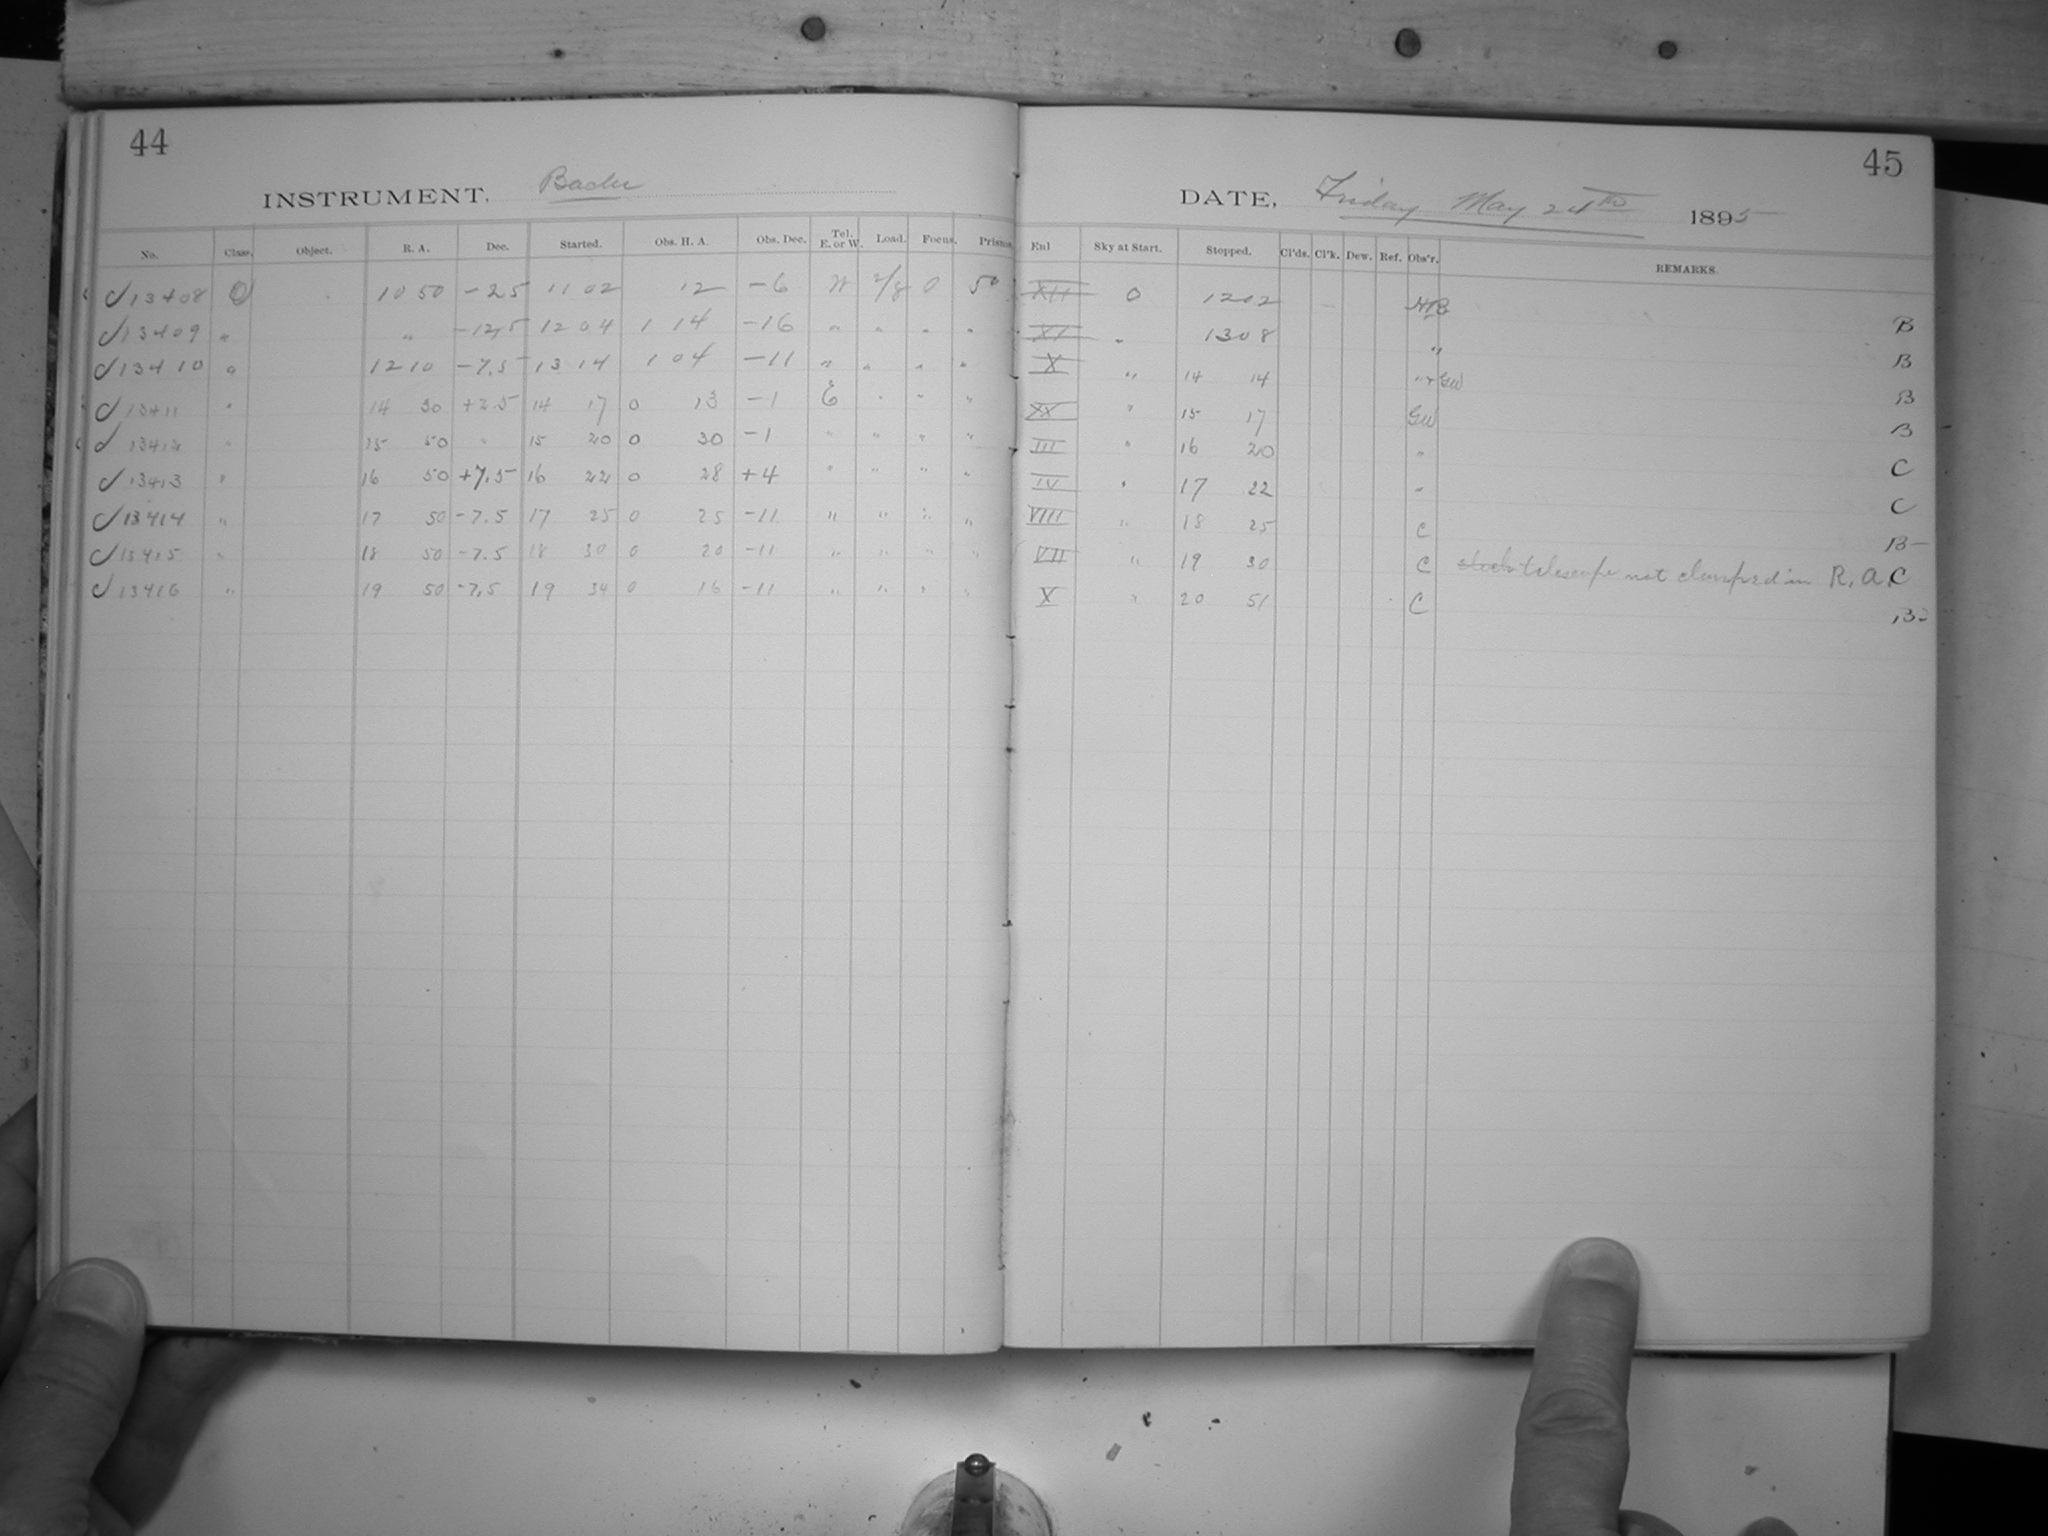 44
INSTRUMENT, Bache
No. Class. Object. R. A. Dec. Started. Obs. H. A. Obs. Dec. Tel. E. or W. Load. Focus. Prisms.
13408 O 10 50 -2.5 11 02 12 -6 W 2/8 0 50
13409 " " -12.5 12 04 1 14 -16 " " " "
13410 " 12 10 -7.5 13 14 1 04 -11 " " " "
13411 " 14 30 +2.5 14 17 0 13 -1 E " " "
13412 " 15 50 " 15 20 0 30 -1 " " " "
13413 " 16 50 +7.5 16 22 0 28 +4 " " " "
13414 " 17 50 -7.5 17 25 0 25 -11 " " " "
13415 " 18 50 -7.5 18 30 0 20 -11 " " " "
13416 " 19 50 -7.5 19 34 0 16 -11 " " " "
45
DATE, Friday May 24th 1895
Sky at Start. Stopped. Cl'ds. Cl'k. Dew. Ref. Obs'r. REMARKS.
XII 0 12 02 B
XI " 13 08 " B
X " 14 14 " + GW B
XX " 15 17 GW B
III " 16 20 " C
IV " 17 22 " C
VIII " 18 25 C B-
VII " 19 30 C telescope not clamped in R. A. C
X " 20 51 C B-